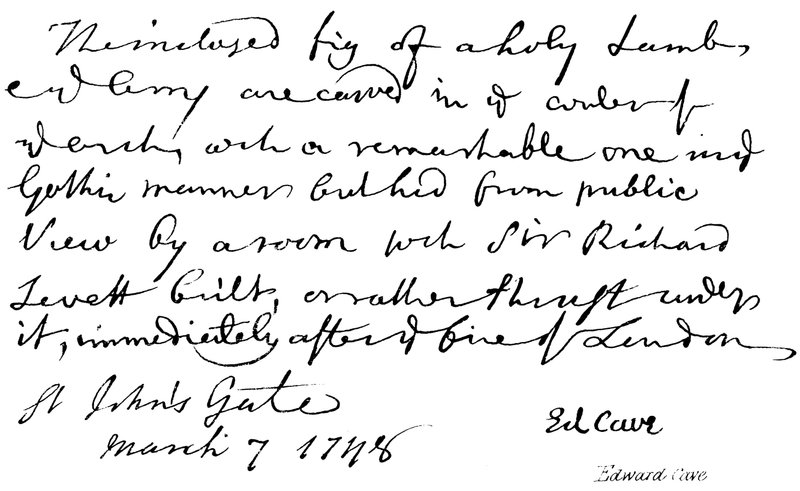 The inclosed fig of a holy Lamb,
& ye are carved in ye center of
ye arch, wch a remarkable one in ye
Gothic manner but hid from public
View by a room wch Sir Richard
Levett built, or rather thrust under
it, immediately after ye fire of London
St John's Gate
March 7 1748
Ed Cave
Edward Cave